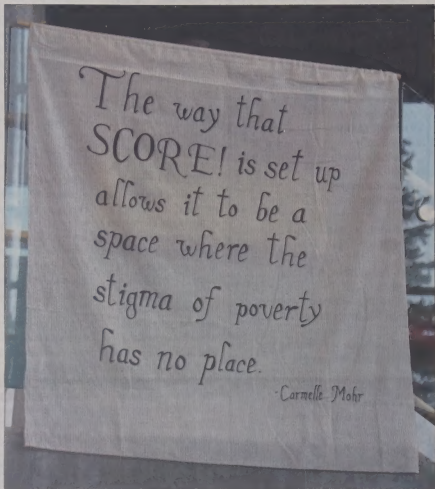 The way that
SCORE! is set up
allows it to be a
space where the
stigma of poverty
has no place.
-Carmelle Mohr